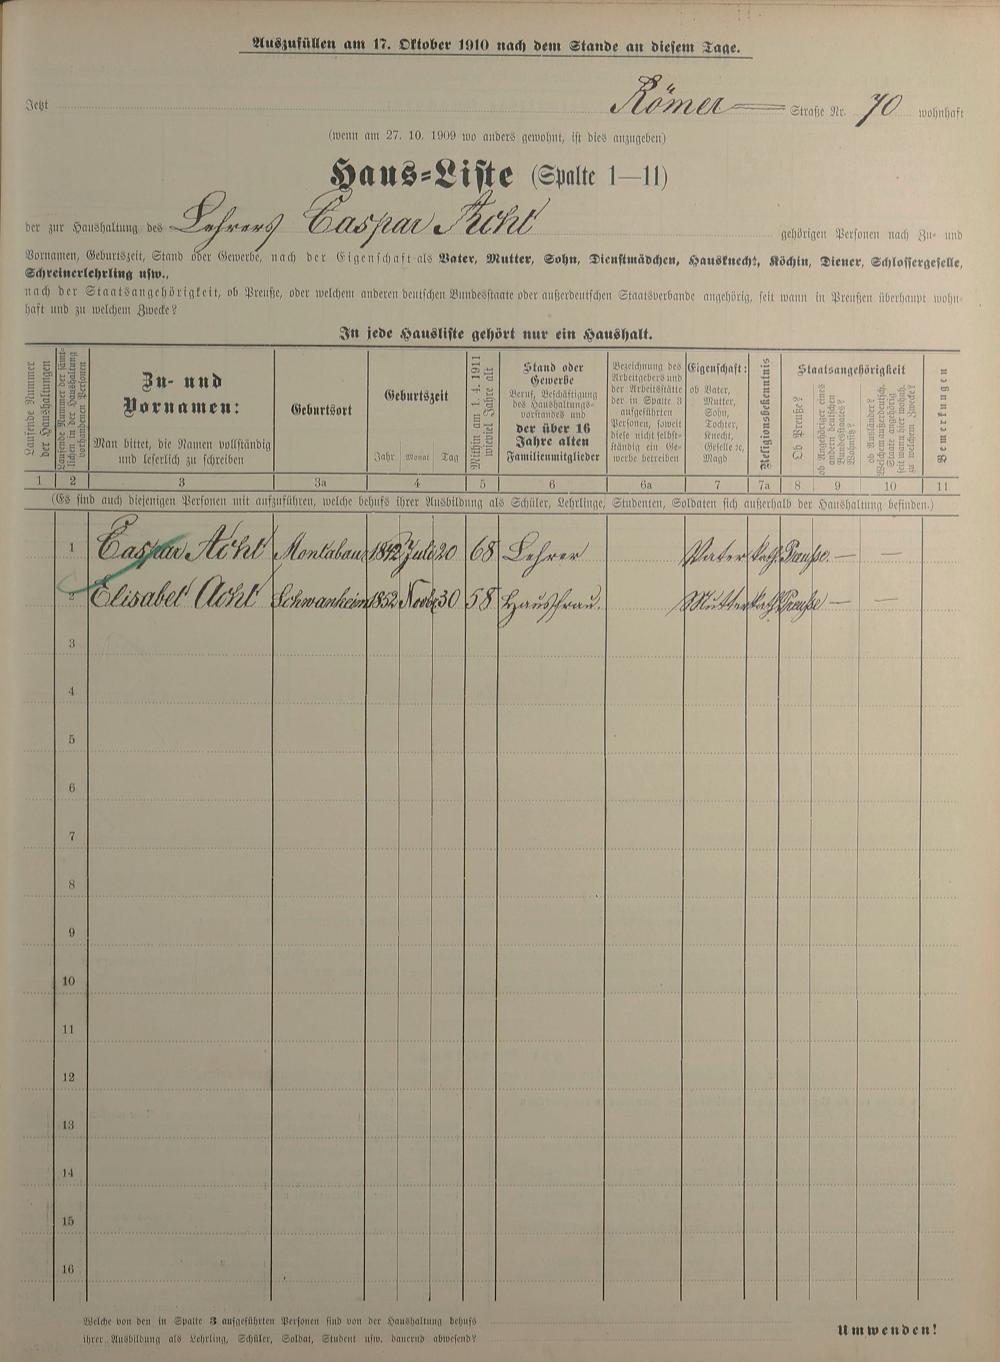 Auszufüllen am 17. Oktober 1910 nach dem Stande an diesem Tage.
Jetzt Römer Straße Nr. 70 wohnhaft
(wenn am 27. 10. 1909 wo anders gewohnt, ist dies anzugeben)
Haus-Liste (Spalte 1—11)
der zur Haushaltung des Lehrers Caspar Acht gehörigen Personen nach Zu- und
Vornamen, Geburtszeit, Stand oder Gewerbe, nach der Eigenschaft als Vater, Mutter, Sohn, Dienstmädchen, Hausknecht, Köchin, Diener, Schlossergeselle,
Schreinerlehrling usw.,
nach der Staatsangehörigkeit, ob Preuße, oder welchem anderen deutschen Bundesstaate oder außerdeutschen Staatsverbande angehörig, seit wann in Preußen überhaupt wohn-
haft und zu welchem Zwecke?
In jede Hausliste gehört nur ein Haushalt.
Laufende Nummer der Haushaltungen
Laufende Nummer der sämt-
lichen in der Haushaltung
vorhandenen Personen
Zu- und
Vornamen:
Man bittet, die Namen vollständig
und leserlich zu schreiben
Geburtsort
Geburtszeit
Jahr Monat Tag
Mithin am 1. 4. 1911
wieviel Jahre alt
Stand oder
Gewerbe
Beruf, Beschäftigung
des Haushaltungs-
vorstandes und
der über 16
Jahre alten
Familienmitglieder
Bezeichnung des
Arbeitgebers und
der Arbeitsstätte
der in Spalte 3
aufgeführten
Personen, soweit
diese nicht selbst-
ständig ein Ge-
werbe betreiben
Eigenschaft:
ob Vater,
Mutter,
Sohn,
Tochter,
Knecht,
Geselle ec,
Magd
Religionsbekenntnis
Staatsangehörigkeit
Ob Preuße?
ob Angehöriger eines
andern deutschen
Bundesstaates?
Wohnsitz?
ob Ausländer?
Welchem außerdeutsch.
Staate angehörig
seit wann hier wohnh.
zu welchem Zwecke?
Bemerkungen
1 2 3 3a 4 5 6 6a 7 7a 8 9 10 11
(Es sind auch diejenigen Personen mit aufzuführen, welche behufs ihrer Ausbildung als Schüler, Lehrlinge, Studenten, Soldaten sich außerhalb der Haushaltung befinden.)
1 Caspar Acht Montabaur 1842 Juli 20 68 Lehrer Vater kath. Preuße. — —
2 Elisabet Acht Schwanheim 1852 Novbr 30 58 Hausfrau. Mutter kath. Preuße — —
3
4
5
6
7
8
9
10
11
12
13
14
15
16
Welche von den in Spalte 3 aufgeführten Personen sind von der Haushaltung behufs
ihrer Ausbildung als Lehrling, Schüler, Soldat, Student usw. dauernd abwesend?
Umwenden!